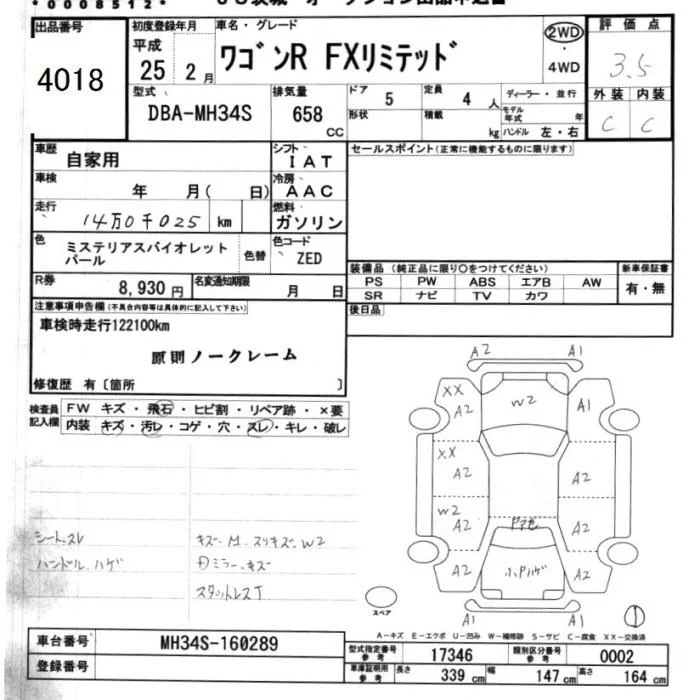 *0008512*
出品番号
4018
初度登録年月
平成
25 2月
車名・グレード
ワゴンR FXリミテッド
2WD
4WD
評価点
3.5
外装 内装
C C
型式
DBA-MH34S
排気量
658
CC
ドア
5
定員
4 人
形状
積載
kg
ディーラー・並行
モデル年式 年
ハンドル 左・右
車歴
自家用
シフト
IAT
セールスポイント(正常に機能するものに限ります)
車検
年 月( 日)
冷房
AAC
走行
14万0千025 km
燃料
ガソリン
色
ミステリアスバイオレット
パール
色替
色コード
ZED
装備品 (純正品に限り○をつけてください)
PS PW ABS エアB AW
SR ナビ TV カワ
新車保証書
有・無
R券
8,930円
名変通知期限
月 日
後日品
注意事項申告欄(不具合内容等は具体的に記入して下さい)
車検時走行122100km
原則ノークレーム
修復歴 有〔箇所 〕
検査員
記入欄
FW キズ・飛石・ヒビ割・リペア跡・×要
内装 キズ・汚レ・コゲ・穴・スレ・キレ・破レ
シートスレ
ハンドル.ハゲ
キズ.M.スリキズ.W2
ミラー.キズ
スタットレスT
A2 A1
XX
A2
W2
A1
XX
A2
A2
W2
A2
A2
A2
小Pハゲ
A2
A1 A1
スペア
A-キズ E-エクボ U-凹み W-補修跡 S-サビ C-腐食 XX-交換済
車台番号
MH34S-160289
登録番号
型式指定番号
参考
17346
類別区分番号
参考
0002
車庫証明用
参考
長さ
339 cm
幅
147 cm
高さ
164 cm